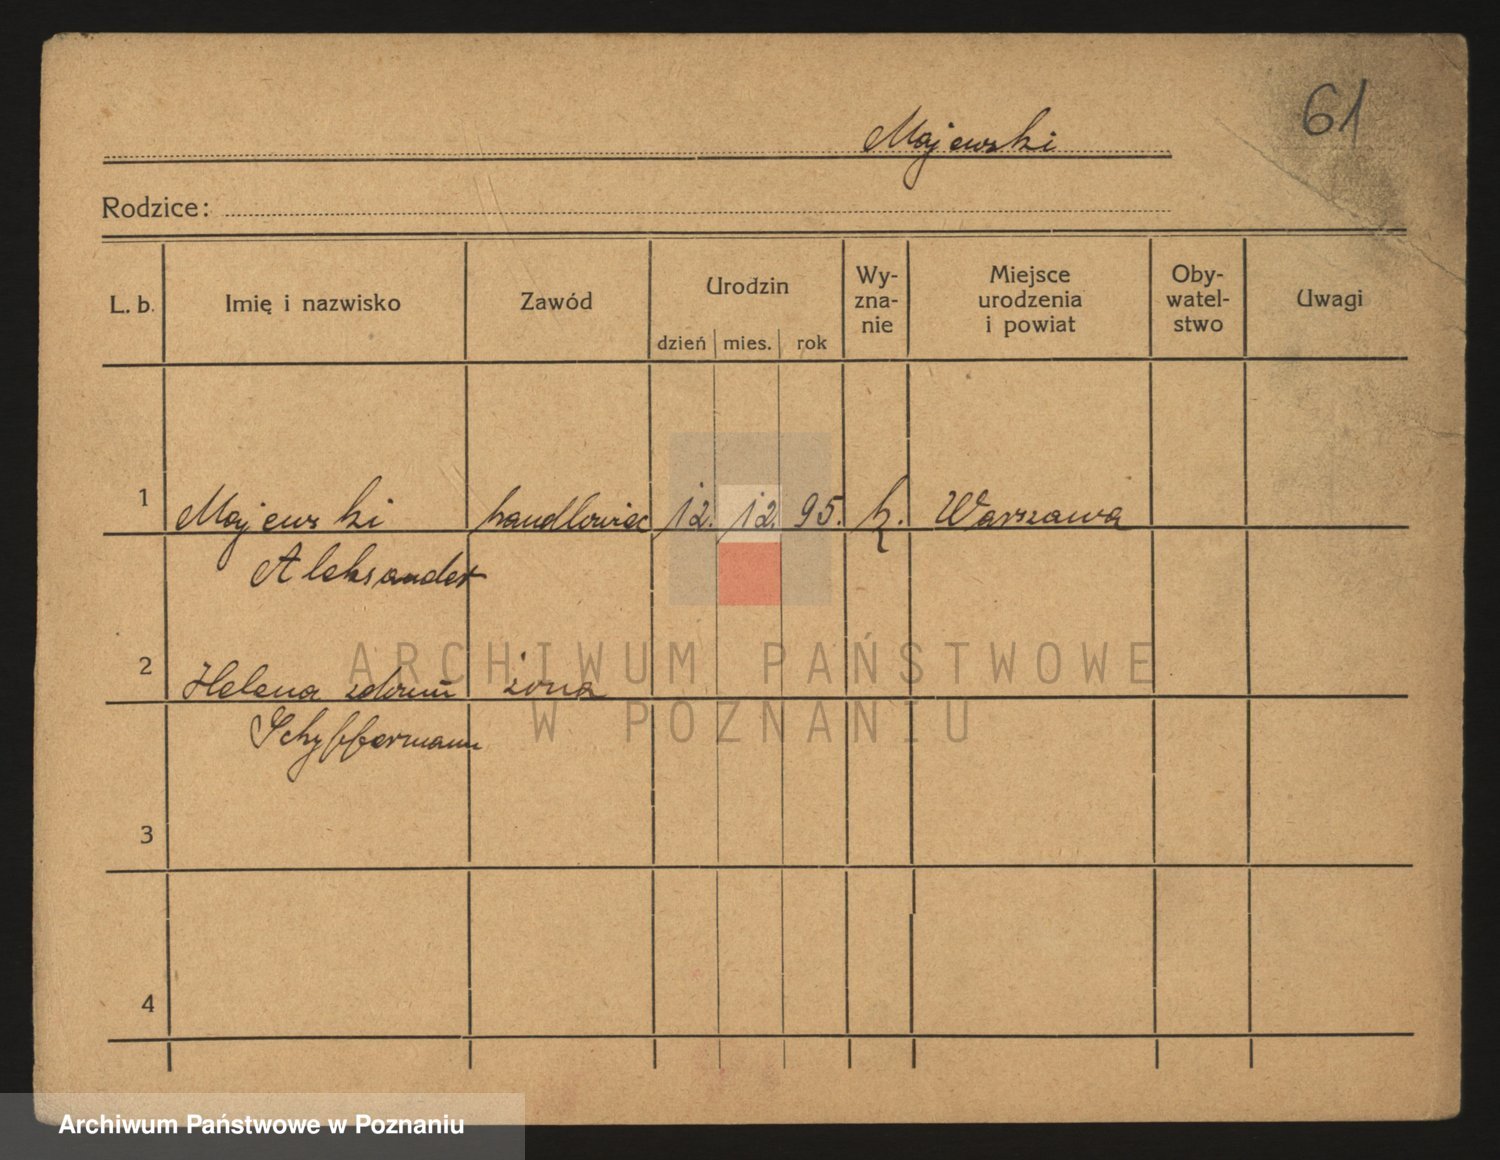 61
Majewski
Rodzice:
L. b. Imię i nazwisko Zawód Urodzin dzień mies. rok Wy-zna-nie Miejsce urodzenia i powiat Oby-watel-stwo Uwagi
1 Majewski handlowiec 12. 12. 95. k. Warszawa
Aleksander
2 Helena zdomu żona
Schyffermann
3
4
ARCHIWUM PAŃSTWOWE
W POZNANIU
Archiwum Państwowe w Poznaniu